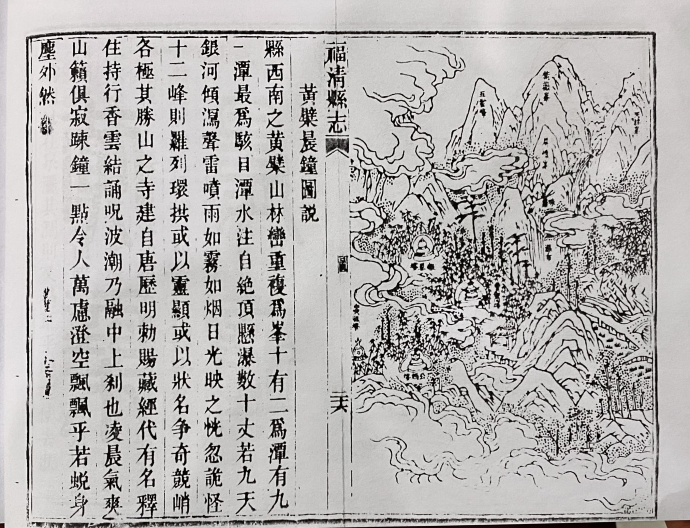 福清縣志
圖
黃檗晨鐘圖說
縣西南之黃檗山林巒重複為峯十有二為潭有九
一潭最為駭目潭水注自絕頂懸瀑數十丈若九天
銀河傾瀉聲雷噴雨如霧如烟日光映之恍忽詭怪
十二峰則羅列環拱或以靈顯或以狀名爭奇競峭
各極其勝山之寺建自唐歷明勅賜藏經代有名釋
住持行香雲結誦呪波潮乃融中上剎也凌晨氣爽
山籟俱寂踈鐘一點令人萬慮澄空飄飄乎若蛻身
塵外然